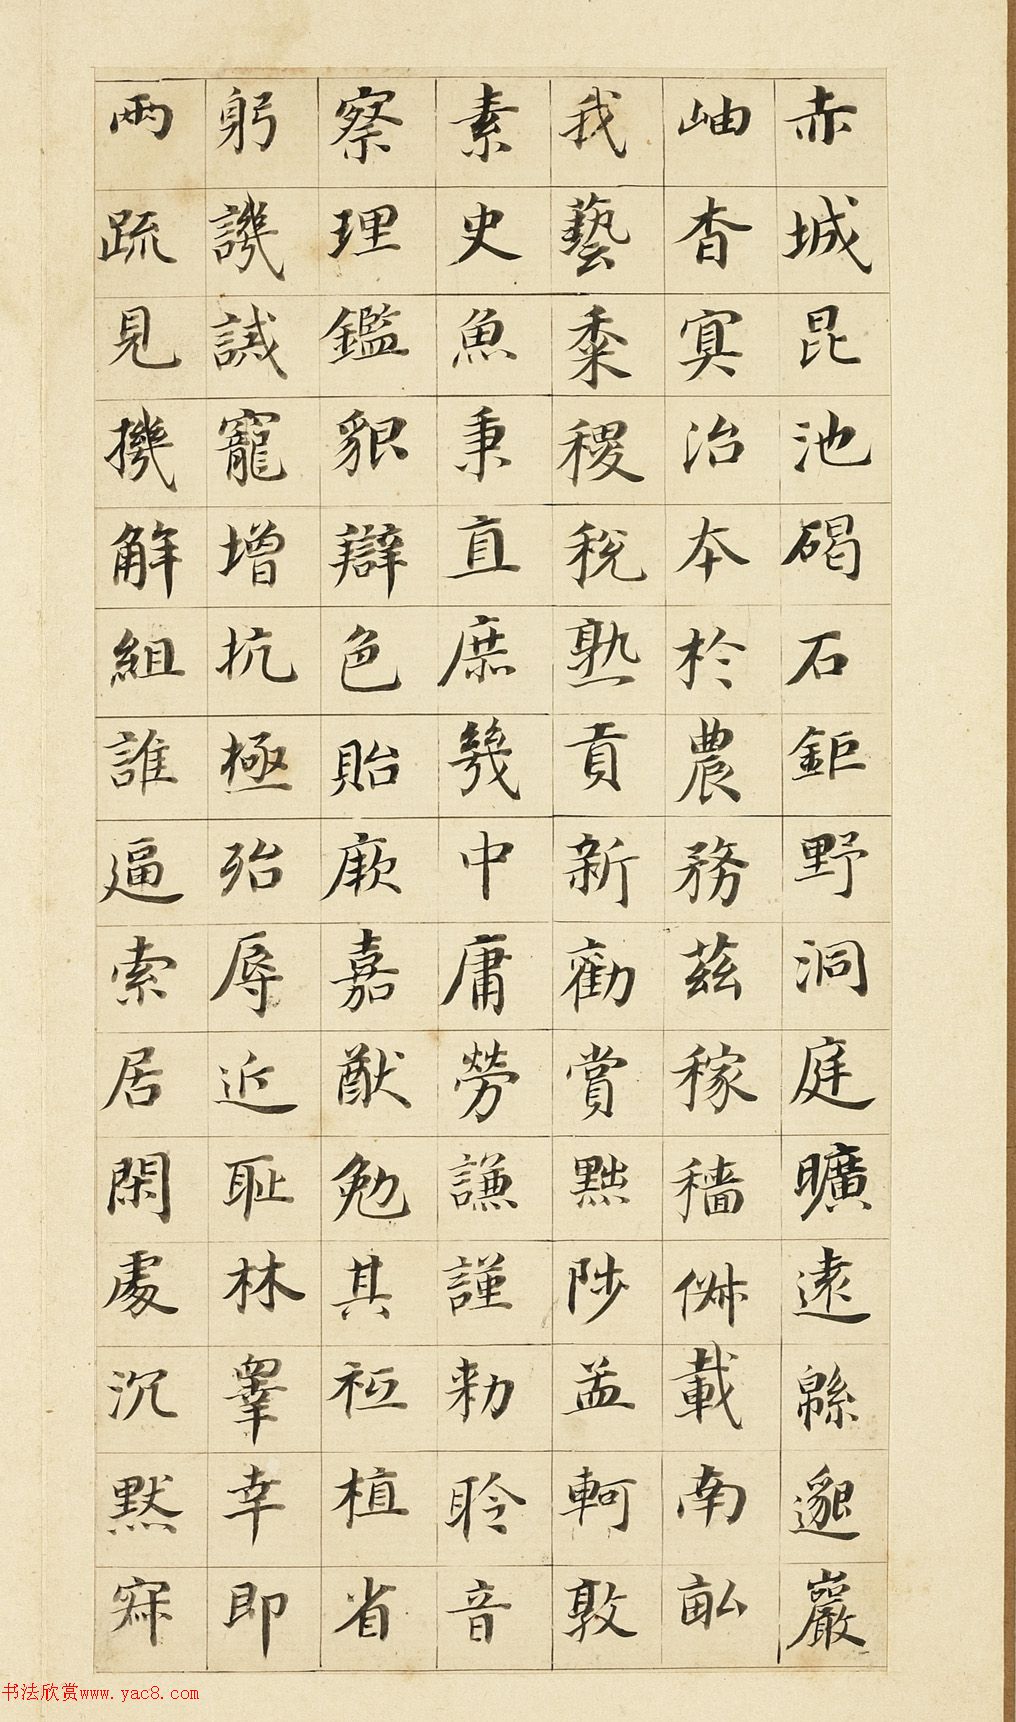 赤城昆池碣石鉅野洞庭曠遠緜邈巖
岫杳冥治本於農務茲稼穡俶載南畝
我藝黍稷稅熟貢新勸賞黜陟孟軻敦
素史魚秉直庶幾中庸勞謙謹勑聆音
察理鑑貌辯色貽厥嘉猷勉其祗植省
躬譏誡寵增抗極殆辱近耻林睾幸即
兩疏見機解組誰逼索居閑處沉默寂
书法欣赏www.yac8.com